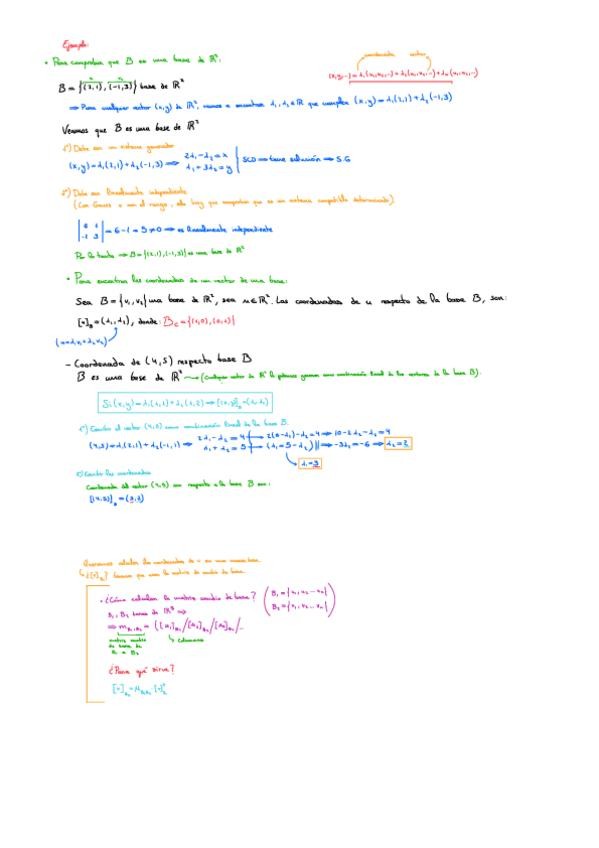 Ejemplo:
• Para comprobar que B es una base de ℝ²:
coordenada vector
B = {(2,1), (-1,3)} base de ℝ²
⇒ Para cualquier vector (x,y) de ℝ², vamos a encontrar λ₁, λ₂ ∈ ℝ que cumplen (x,y) = λ₁(2,1) + λ₂(-1,3)
Veamos que B es una base de ℝ²
1º) Debe ser un sistema generador
(x,y) = λ₁(2,1) + λ₂(-1,3) ⇒ 2λ₁ - λ₂ = x
λ₁ + 3λ₂ = y } SCD ⇒ tiene solución ⇒ S.G
2º) Debe ser linealmente independiente
(Con Gauss o con el rango, hay que comprobar que es un sistema compatible determinado)
-1 3 | = 6 - 1 = 5 ≠ 0 ⇒ es linealmente independiente
Por lo tanto ⇒ B = {(2,1), (-1,3)} es una base de ℝ²
• Para encontrar las coordenadas de un vector de una base:
Sea B = {v₁, v₂} una base de ℝ², sea u ∈ ℝ². Las coordenadas de u respecto de la base B, son:
[u]_B = (λ₁, λ₂), donde: B_c = {(1,0), (0,1)}
(u = λ₁v₁ + λ₂v₂)
- Coordenada de (4,5) respecto base B
B es una base de ℝ² → (Cualquier vector de ℝ² lo podemos generar como combinación lineal de los vectores de la base B).
1º) Escribir el vector (4,5) como combinación lineal de la base B.
(4,5) = λ₁(2,1) + λ₂(-1,1) ⇒ 2λ₁ - λ₂ = 4 2(5-λ₂) - λ₂ = 4 ⇒ 10 - 2λ₂ - λ₂ = 4
λ₁ + λ₂ = 5 (λ₁ = 5 - λ₂) ⇒ -3λ₂ = -6 ⇒ λ₂ = 2
λ₁ = 3
2º) Escribir las coordenadas
Coordenada del vector (4,5) con respecto a la base B son:
[(4,5)]_B = (3,2)
Queremos calcular las coordenadas de v en una nueva base.
¿[v]_B₂? Tenemos que usar la matriz de cambio de base.
• ¿Cómo calcular la matriz cambio de base? (B₁ = {u₁, u₂ ... uₙ}
B₂ = {v₁, v₂ ... vₙ})
B₁, B₂ bases de ℝ³ ⇒
columnas
matriz cambio
de base de
¿Para qué sirve?